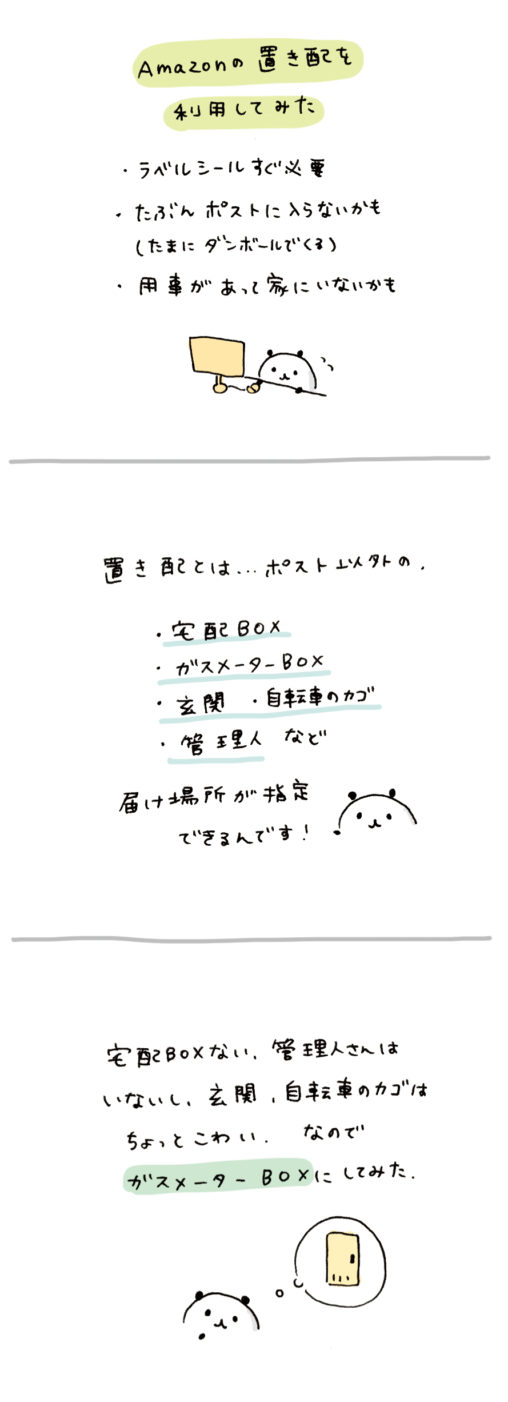 Amazonの置き配を
利用してみた
・ラベルシールすぐ必要
・たぶんポストに入らないかも
(たまにダンボールでくる)
・用事があって家にいないかも
置き配とは...ポスト以外の、
・宅配BOX
・ガスメーターBOX
・玄関 ・自転車のカゴ
・管理人 など
届け場所が指定
できるんです!
宅配BOXない、管理人さんは
いないし、玄関、自転車のカゴは
ちょっとこわい. なので
ガスメーターBOXにしてみた.